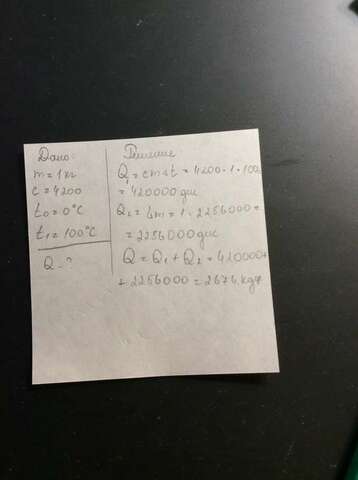 Дано:
m = 1 кг
c = 4200
t₀ = 0°C
t₁ = 100°C
Q - ?
Решение
Q₁ = cm∆t = 4200 · 1 · 100 =
= 420000 дж
Q₂ = Lm = 1 · 2256000 =
= 2256000 дж
Q = Q₁ + Q₂ = 420000 +
+ 2256000 = 2676 кдж